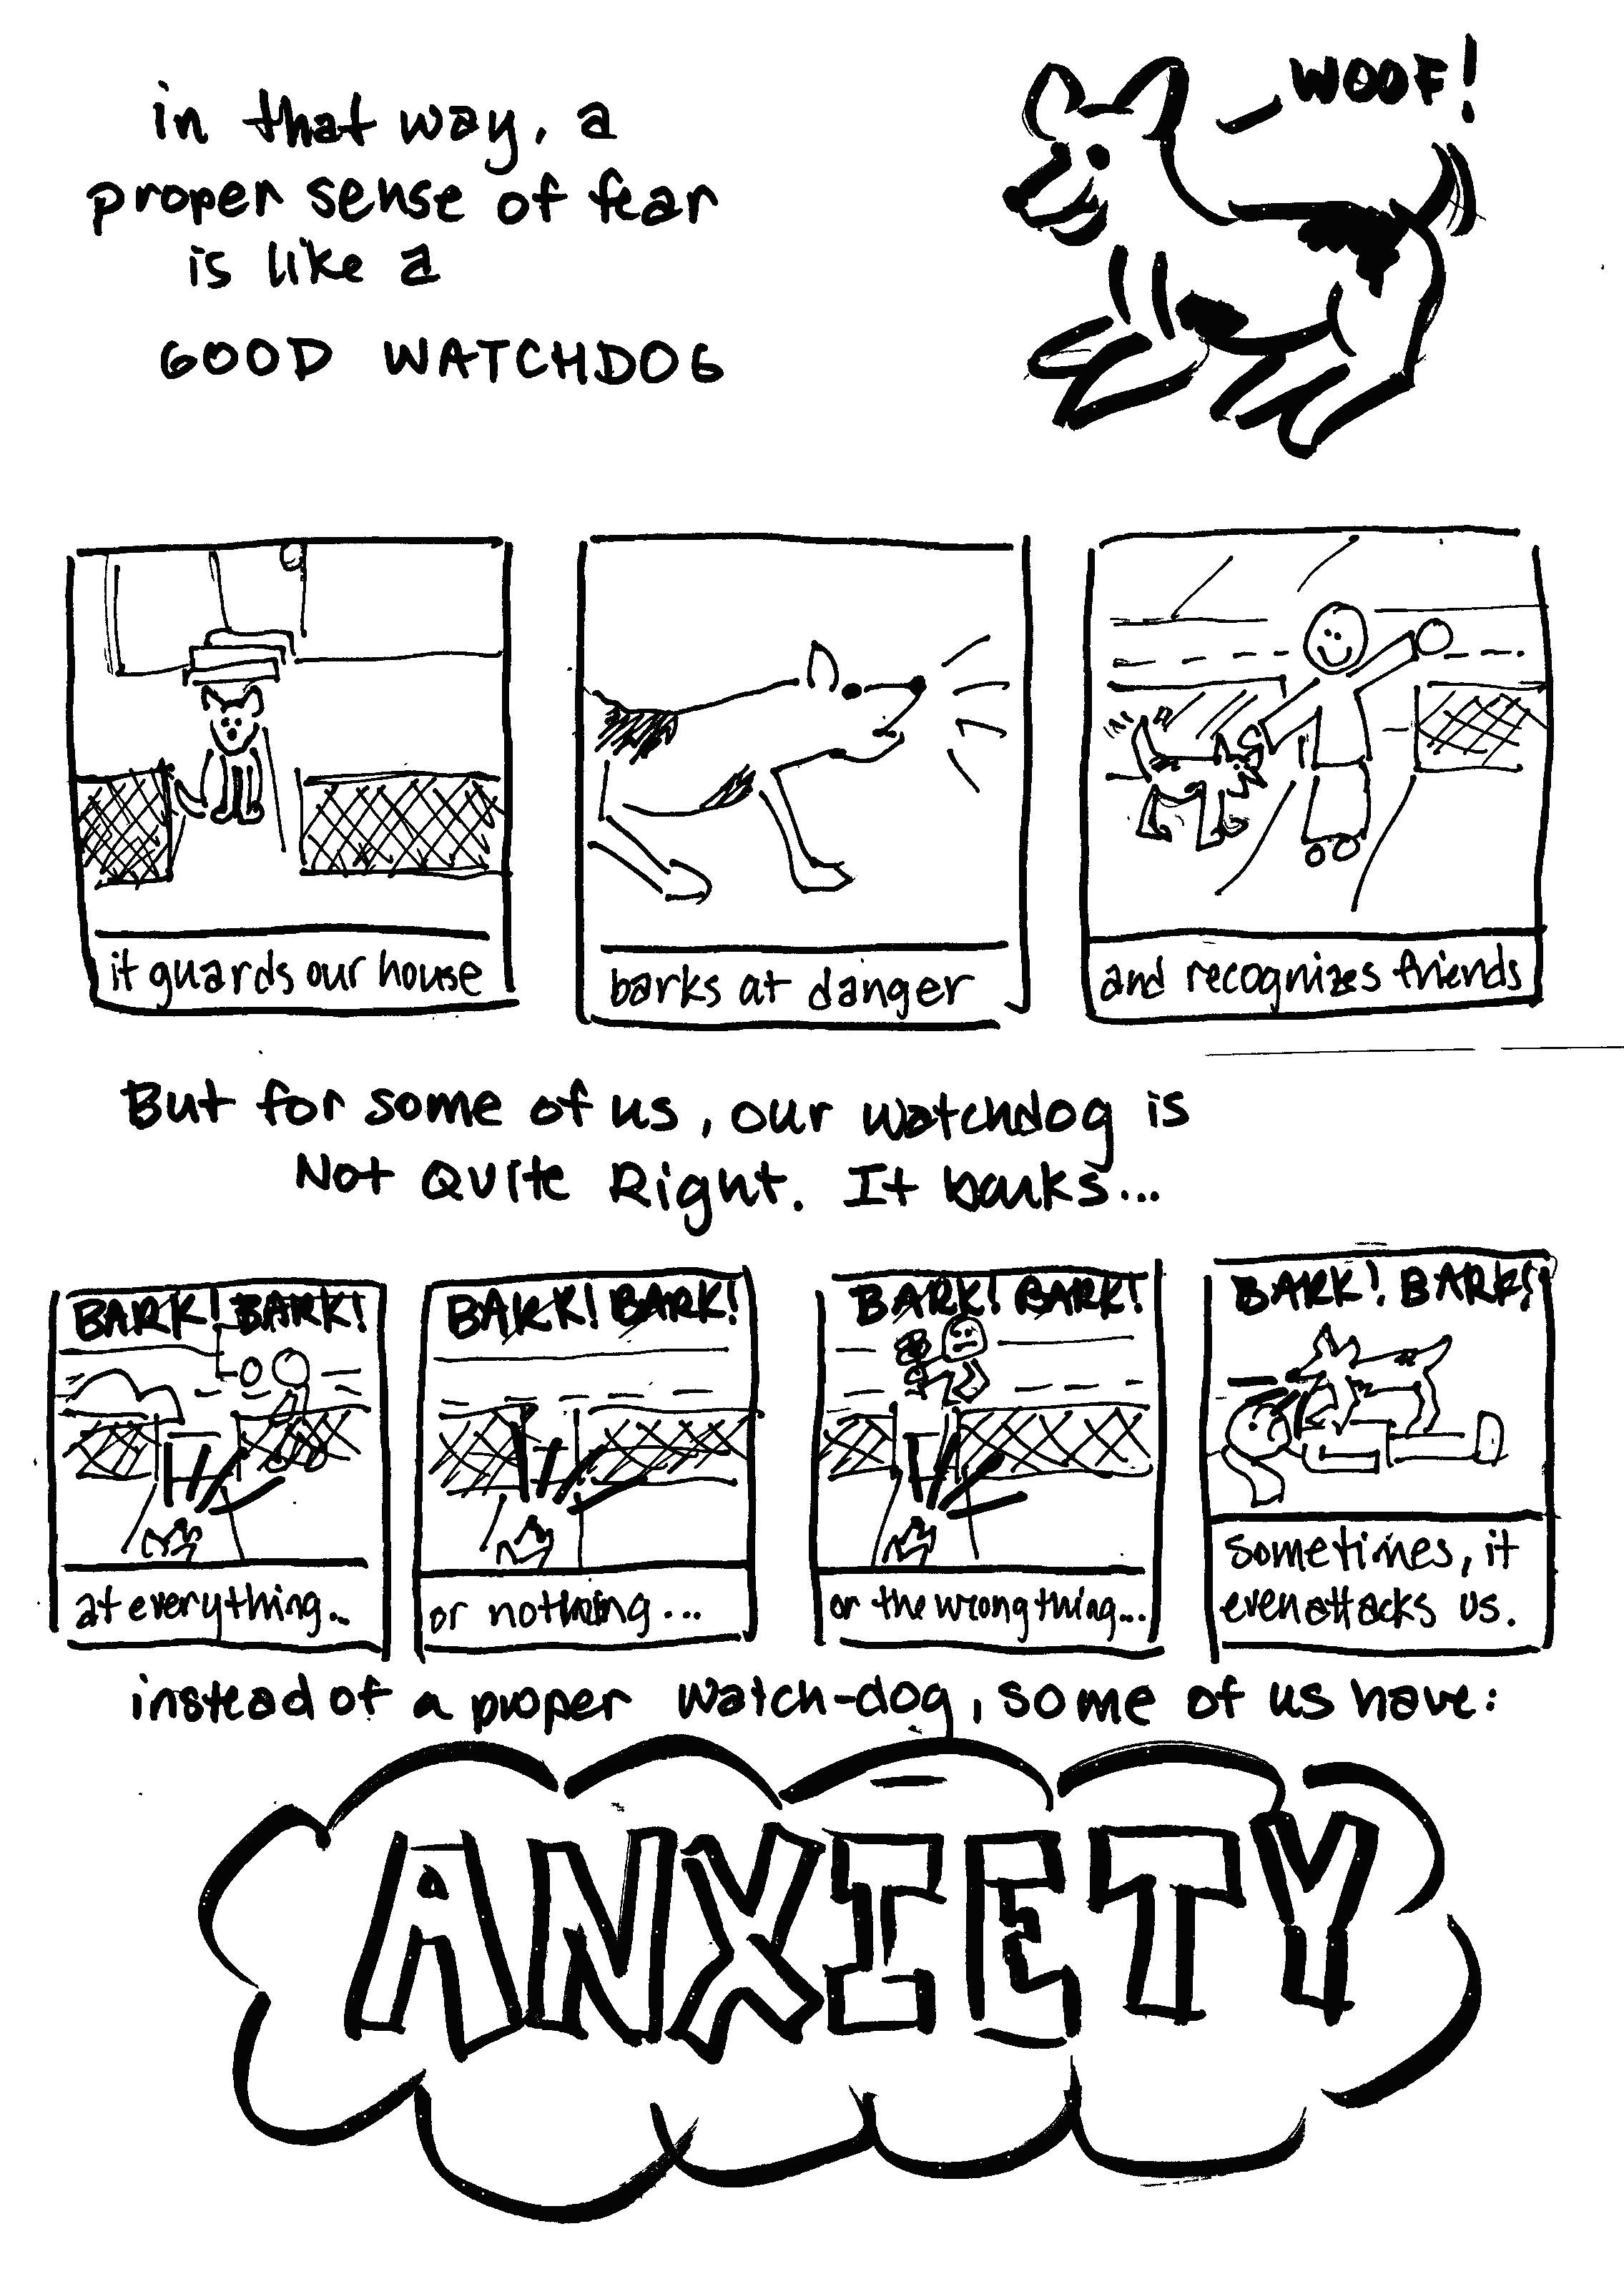 in that way, a
WOOF!
proper sense of fear
is like a
GOOD WATCHDOG
it guards our house
barks at danger
and recognizes friends
But for some of us, our watchdog is
Not Quite Right. It barks...
BARK! BARK!
at everything...
BARK! BARK!
or nothing...
BARK! BARK!
or the wrong thing...
BARK! BARK!
sometimes, it
even attacks us.
instead of a proper watch-dog, some of us have:
ANXIETY